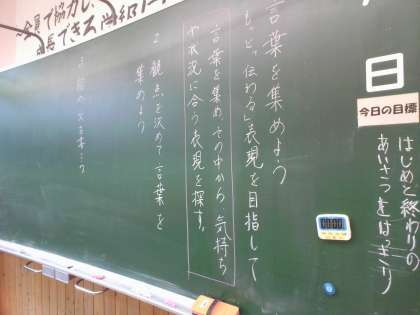 日
今日の目標
はじめと終わりの
あいさつをはっきり
言葉を集めよう
もっと「伝わる」表現を目指して
言葉を集め、その中から気持ち
や状況に合う表現を探す。
2 観点を決めて言葉を
集めよう
全員で協力し